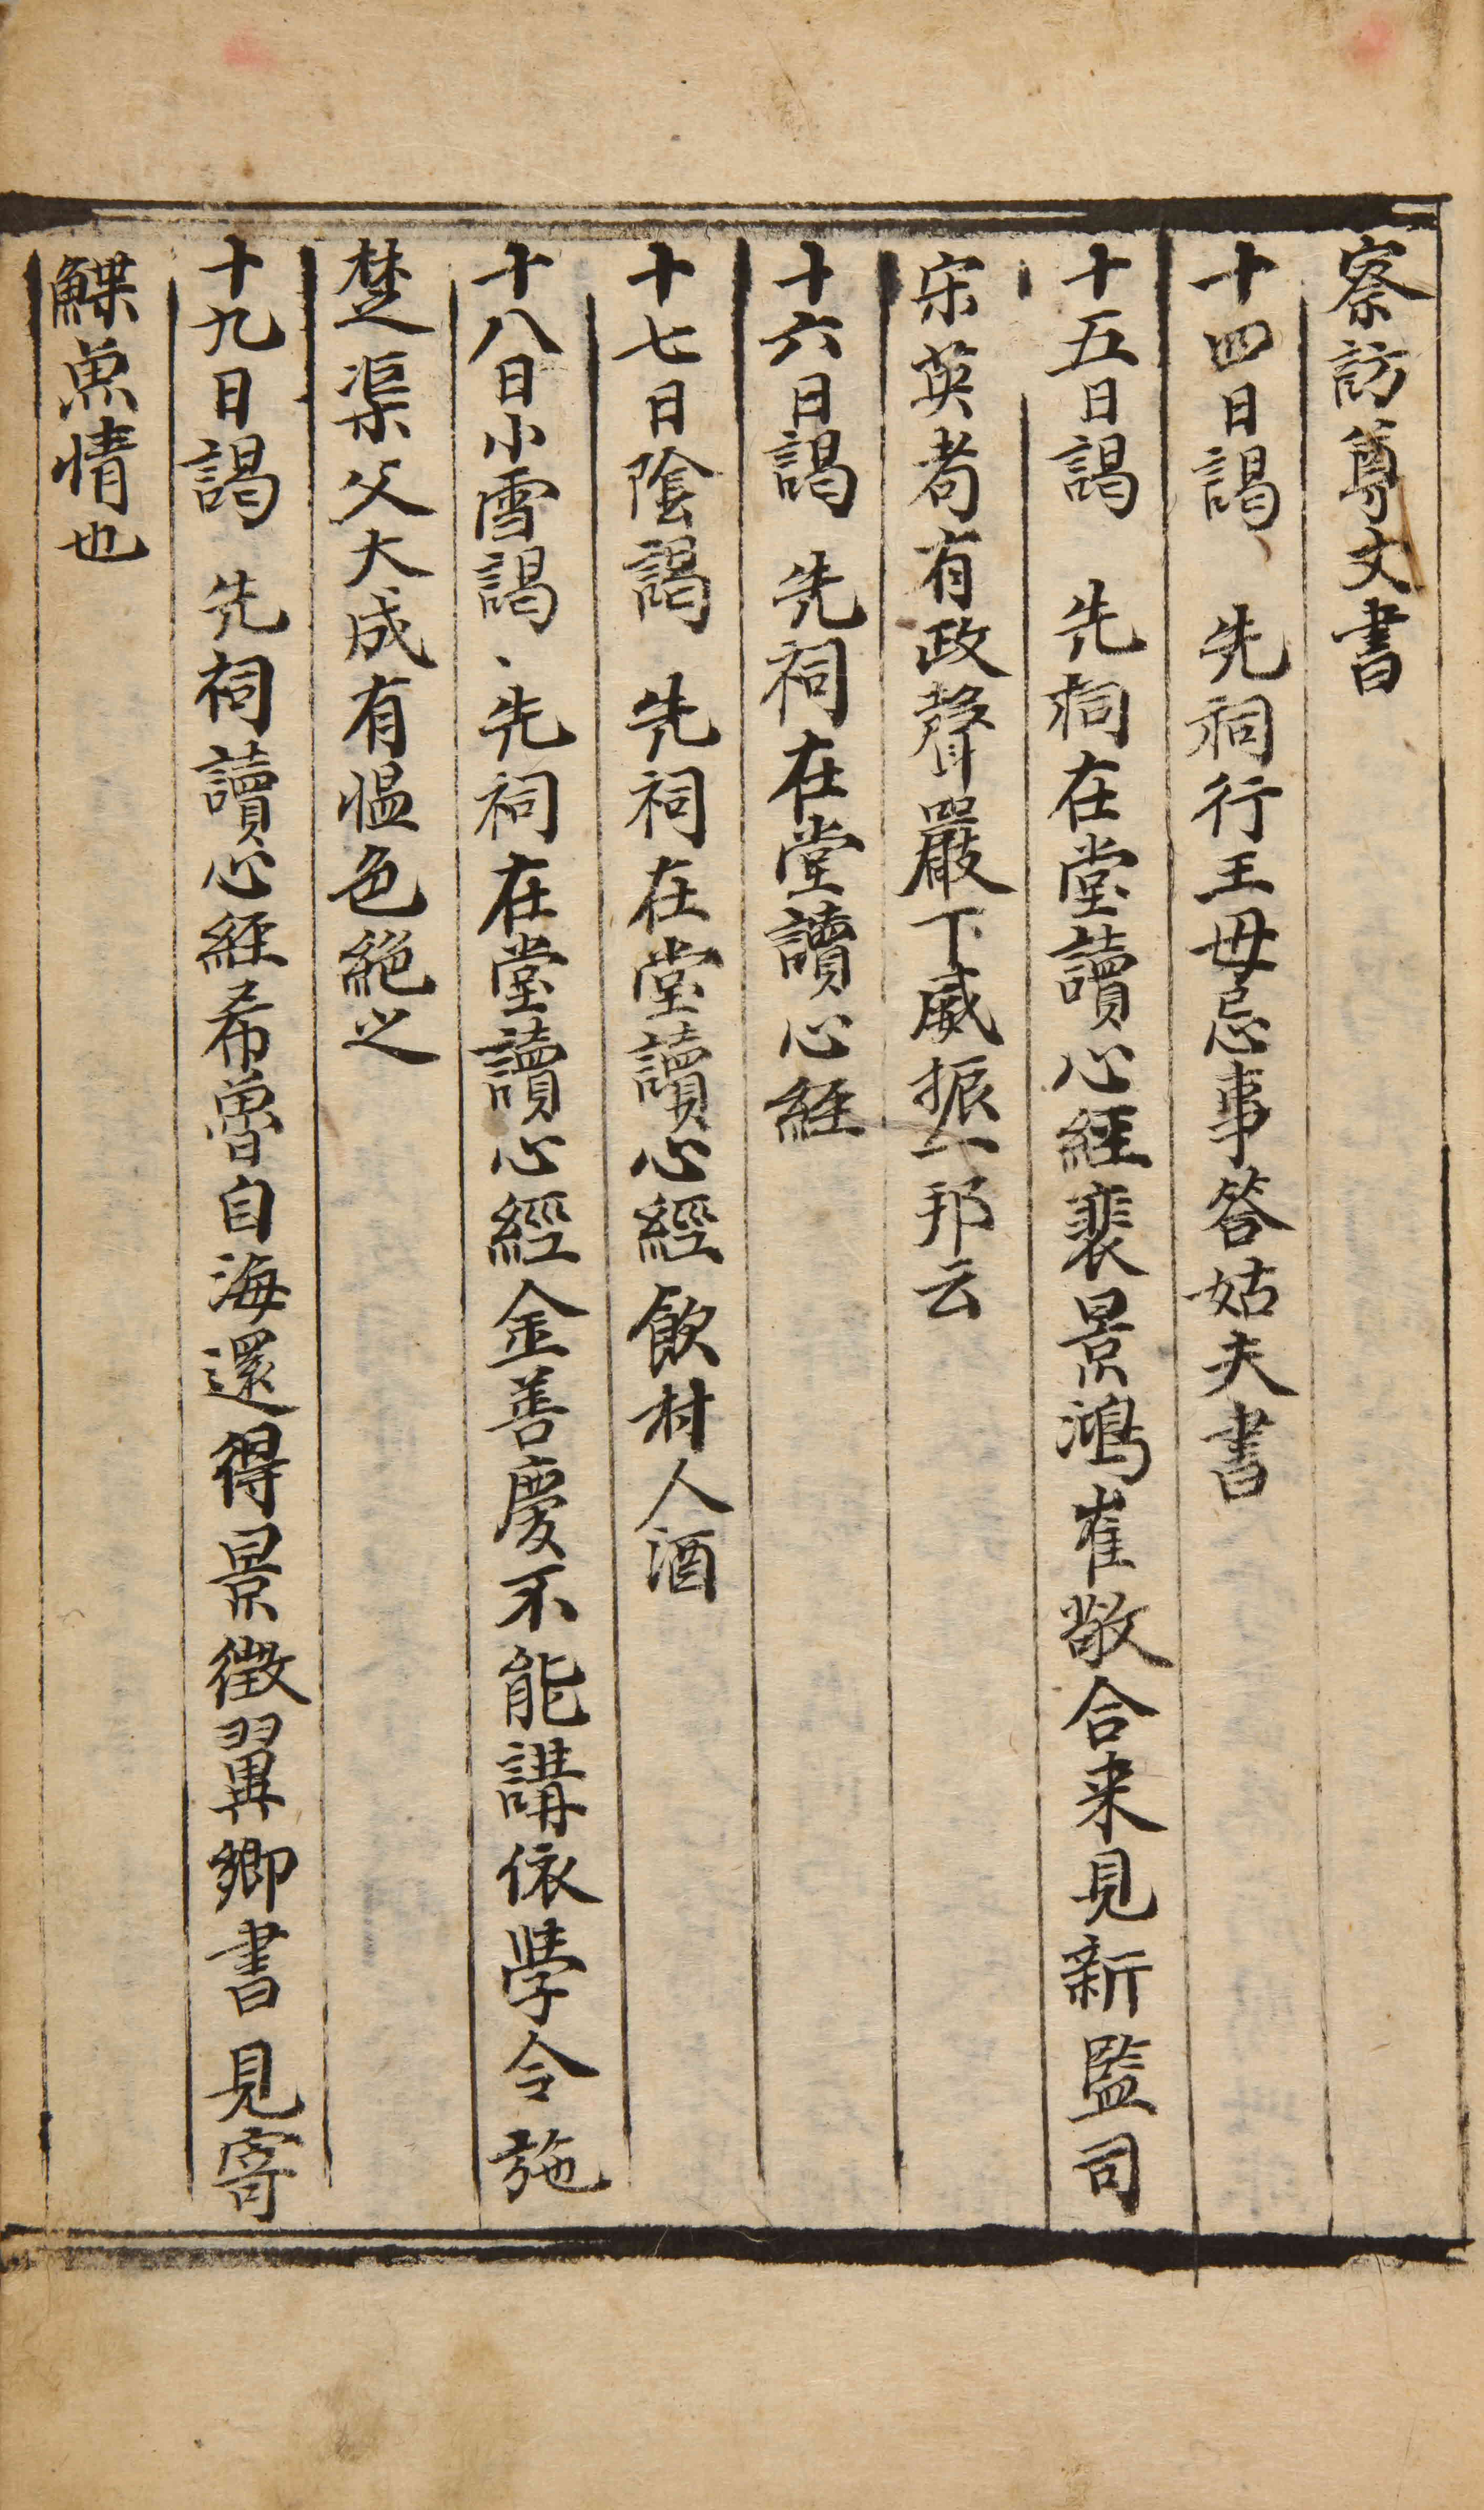 察訪尊丈書
十四日謁、先祠行王母忌事答姑夫書
十五日謁 先祠在堂讀心經裴景鴻崔敬合来見新監司
宋英耈有政聲嚴下威振一邦云
十六日謁 先祠在堂讀心經
十七日陰謁 先祠在堂讀心經飮村人酒
十八日小雪謁、先祠在堂讀心經金善慶不能講依學令施
楚渠父大成有慍色絶之
十九日謁 先祠讀心經希魯自海還得景徵翼卿書見寄
鰈魚情也